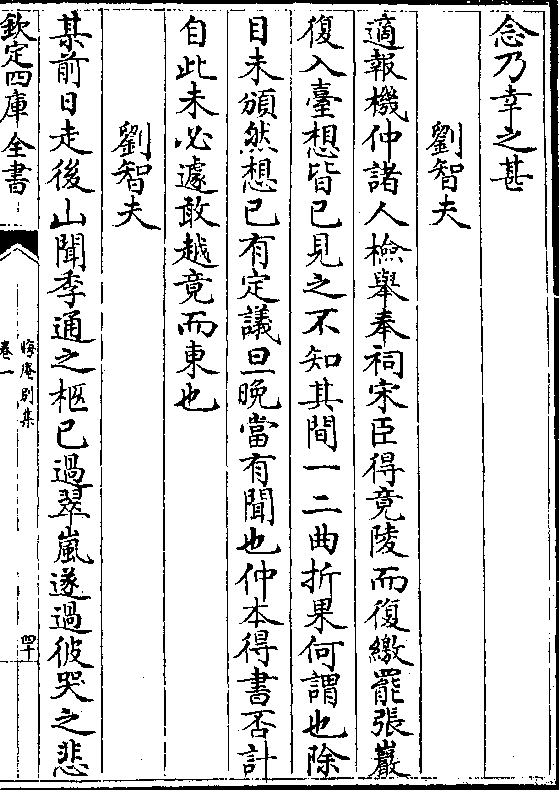 念乃幸之甚
劉智夫
適報機仲諸人檢舉奉祠宋臣得竟陵而復繳罷張巖
復入臺想皆已見之不知其間一二曲折果何謂也除
目未頒然想已有定議旦晚當有聞也仲本得書否計
自此未必遽敢越竟而東也
劉智夫
某前日走後山聞季通之柩已過翠嵐遂過彼哭之悲
欽定四庫全書
晦庵別集
卷一
四十